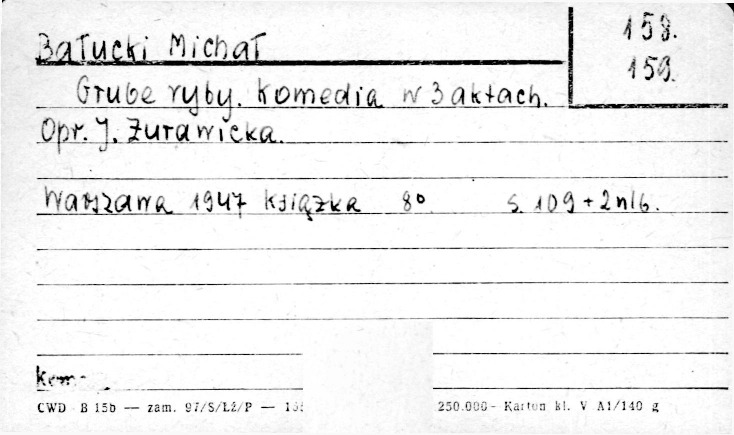 Bałucki Michał
158.
159.
Grube ryby. Komedia w 3 aktach.
Opr. J. Żurawicka.
Warszawa 1947 Książka 8° s. 109 + 2 nlb.
CWD B 15b — zam. 97/S/Łź/P — 250.000 - Karton kl. V A1/140 g